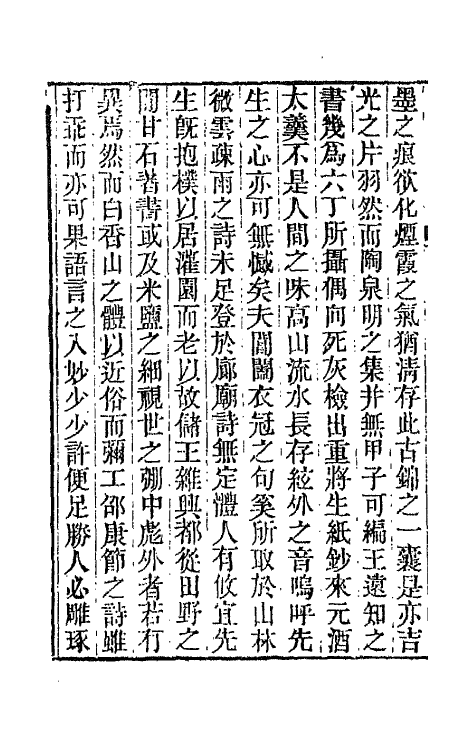 墨之痕欲化煙霞之氣猶淸存此古錦之一囊是亦吉
光之片羽然而陶泉明之集并無甲子可編王遠知之
書幾爲六丁所攝偶向死灰檢出重將生紙鈔來元酒
太羹不是人間之味高山流水長存絃外之音嗚呼先
生之心亦可無憾矣夫閶闔衣冠之句奚所取於山林
微雲疎雨之詩未足登於廊廟詩無定體人有攸宜先
生旣抱樸以居灌園而老以故儲王雜興都從田野之
閒甘石著書或及米鹽之細視世之弸中彪外者若有
異焉然而白香山之體以近俗而彌工邵康節之詩雖
打乖而亦可果語言之入妙少少許便足勝人必雕琢